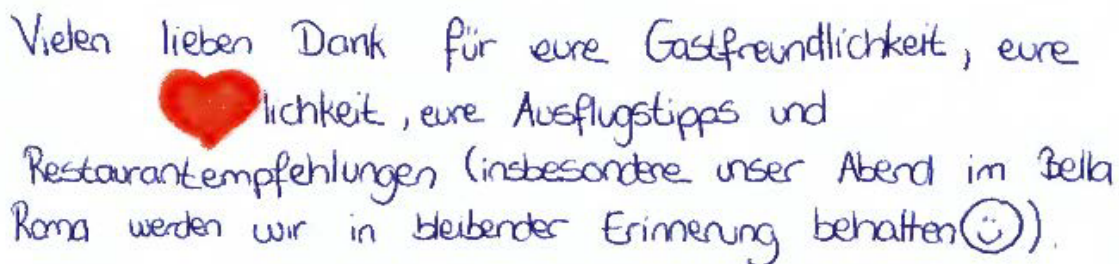 Vielen lieben Dank für eure Gastfreundlichkeit, eure
❤lichkeit, eure Ausflugstipps und
Restaurantempfehlungen (insbesondere unser Abend im Bella
Roma werden wir in bleibender Erinnerung behalten☺)).